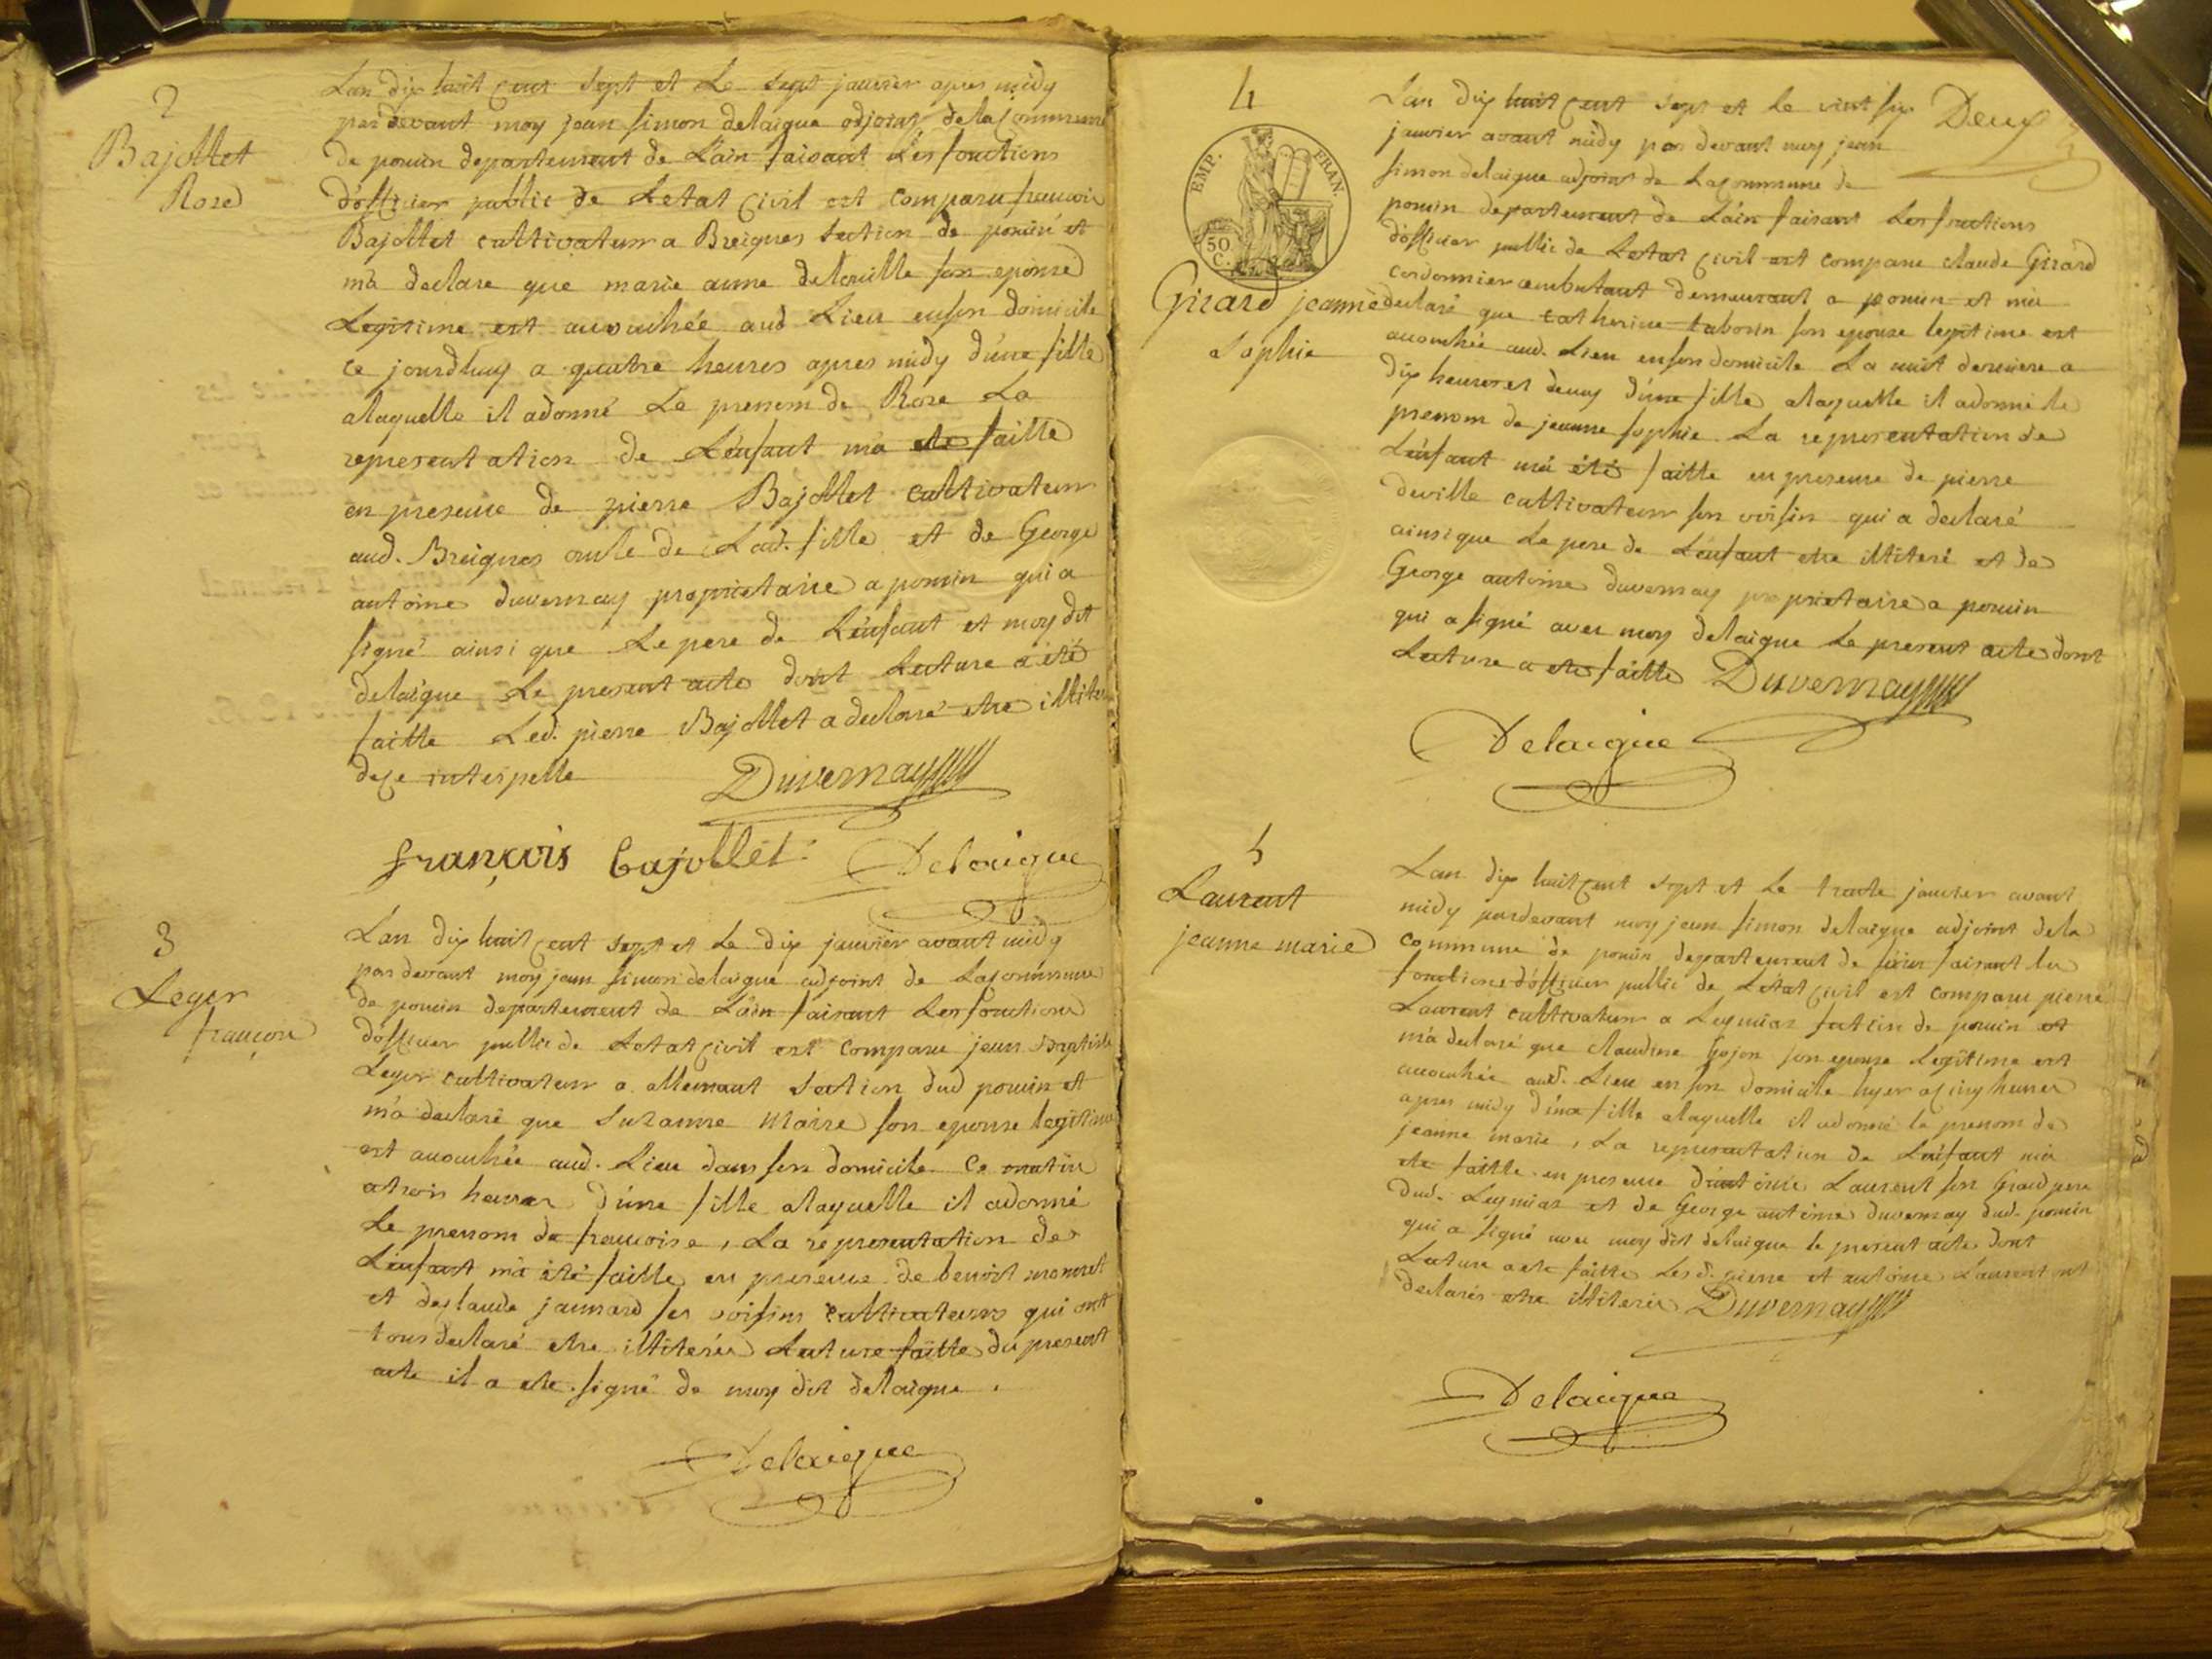 2
Bajollet
Rose
Lan dix huit cent sept et Le sept janvier apres midy
par devant moy jean simon delaigue adjoint de la commune
de poncin departement de L'ain faisant Les fonctions
d'officier public de Letat civil est comparu francois
Bajollet cultivateur a Breignes section de poncin et
m'a declare que marie anne son epouse
Legitime est accouchée aud Lieu en son domicile
ce jourdhuy a quatre heures apres midy d'une fille
alaquelle il a donné Le prenom de Rose La
representation de L'enfant m'a ete faitte
en presence de pierre Bajollet cultivateur
aud. Breignes oncle de Lad. fille et de George
antoine duvernay proprietaire a poncin qui a
signé ainsi que Le pere de L'enfant et moy dit
delaigue Le present acte dont Lecture a été
faitte Led. pierre Bajollet a declaré etre illitere
de ce interpelle
Duvernay
françois bajollet
Delaigue
3
Leger
françoise
Lan dix huit cent sept et Le dix janvier avant midy
par devant moy jean simon delaigue adjoint de La commune
de poncin departement de L'ain faisant Les fonctions
d'officier public de Letat civil est comparu jean Baptiste
Leger cultivateur a allemant section dud poncin et
m'a declaré que Suzanne Maire son epouse legitime
est accouchée aud. Lieu dans son domicile ce matin
a trois heures d'une fille alaquelle il a donné
Le prenom de francoise, La representation de
L'enfant m'a été faitte en presence de benoit
et de claude ses voisins cultivateurs qui ont
tous declaré etre illiterés Lecture faitte du present
acte il a ete signé de moy dit delaigue.
Delaigue
4
EMP. FRAN.
50 C.
Girard jeanne
Sophie
Deux
Lan dix huit cent sept et Le vint six
janvier avant midy par devant moy jean
simon delaigue adjoint de La commune de
poncin departement de L'ain faisant Les fonctions
d'officier public de Letat civil est comparu claude Girard
cordonnier ambulant demeurant a poncin et m'a
declaré que catherine taborin son epouse legitime est
accouchée aud. Lieu en son domicile La nuit derniere a
dix heures et demy d'une fille alaquelle il a donné le
prenom de jeanne sophie La representation de
L'enfant m'a été faitte en presence de pierre
deville cultivateur son voisin qui a declaré
ainsi que Le pere de L'enfant etre illiteré et de
George antoine duvernay proprietaire a poncin
qui a signé avec moy delaigue Le present acte dont
Lecture a ete faitte Duvernay
Delaigue
5
Laurent
jeanne marie
Lan dix huit cent sept et Le trante janvier avant
midy pardevant moy jean simon delaigue adjoint dela
commune de poncin departement de L'ain faisant les
fonctions d'officier public de L'état civil est comparu pierre
Laurent cultivateur a section de poncin et
m'a declaré que claudine Gojon son epouse Legitime est
accouchée aud. Lieu en son domicile hyer a cinq heures
apres midy d'une fille alaquelle il a donné le prenom de
jeanne marie, La representation de L'enfant m'a
ete faitte en presence d'antoine Laurent son Grand pere
dud. et de George antoine duvernay dud. poncin
qui a signé avec moy dit delaigue le present acte dont
Lecture a ete faitte Lesd. pierre et antoine Laurent ont
declarés etre illiterés Duvernay
Delaigue